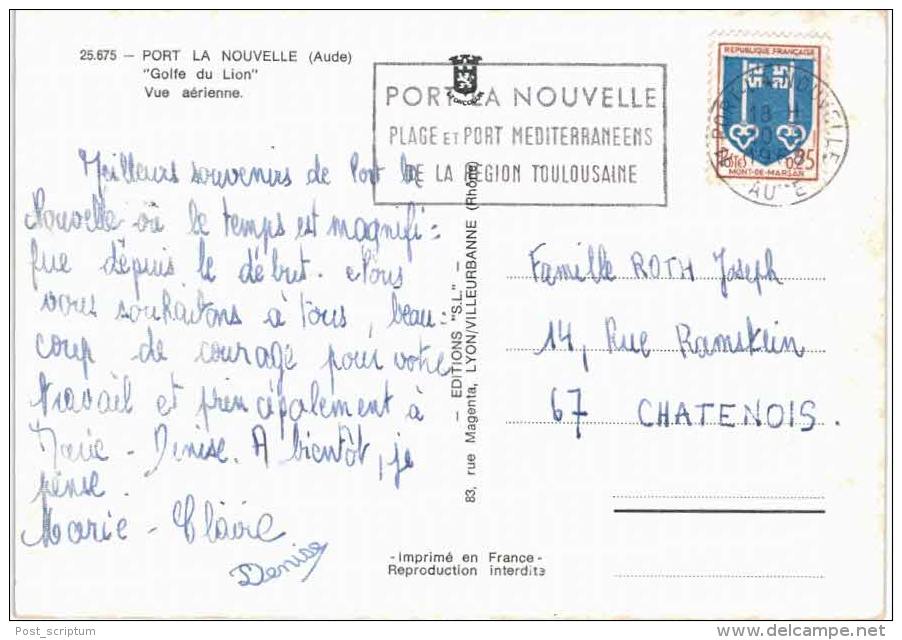 25.675 — PORT LA NOUVELLE (Aude)
"Golfe du Lion"
Vue aérienne.
PORT LA NOUVELLE
PLAGE ET PORT MEDITERRANEENS
DE LA REGION TOULOUSAINE
REPUBLIQUE FRANÇAISE
POSTES 0,25
MONT-DE-MARSAN
PORT-LA-NOUVELLE
18 H
AUDE
Meilleurs souvenirs de Port la
Nouvelle où le temps est magnifi=
que depuis le début. Nous
vous souhaitons à tous, beau=
coup de courage pour votre
travail et principalement à
Marie - Denise. A bientôt, je
pense.
Marie - Claire
Denise
— EDITIONS "S.L." —
83, rue Magenta, LYON/VILLEURBANNE (Rhône)
Famille ROTH Joseph
14, Rue Ramstein
67 CHATENOIS.
-Imprimé en France-
Reproduction interdite
Post_scriptum
delcampe.net